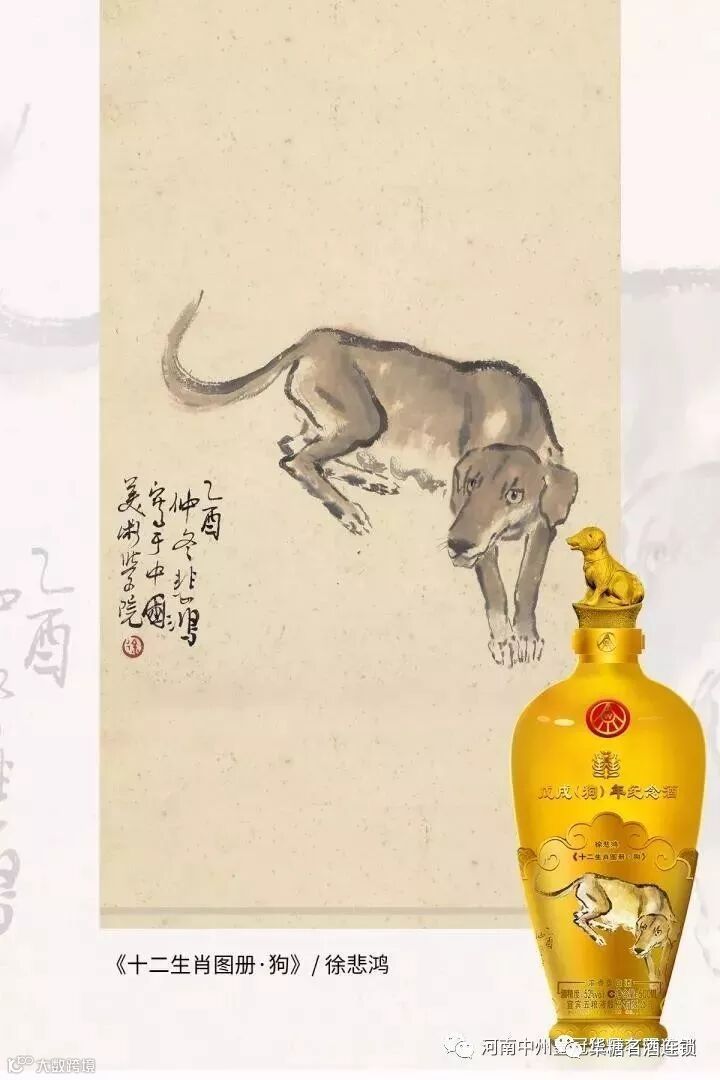 乙酉
仲冬悲鸿
写于中国
美术学院
戊戌(狗)年纪念酒
徐悲鸿
《十二生肖图册·狗》
乙酉
《十二生肖图册·狗》/ 徐悲鸿
河南中州
华糖名酒连锁
大数跨境